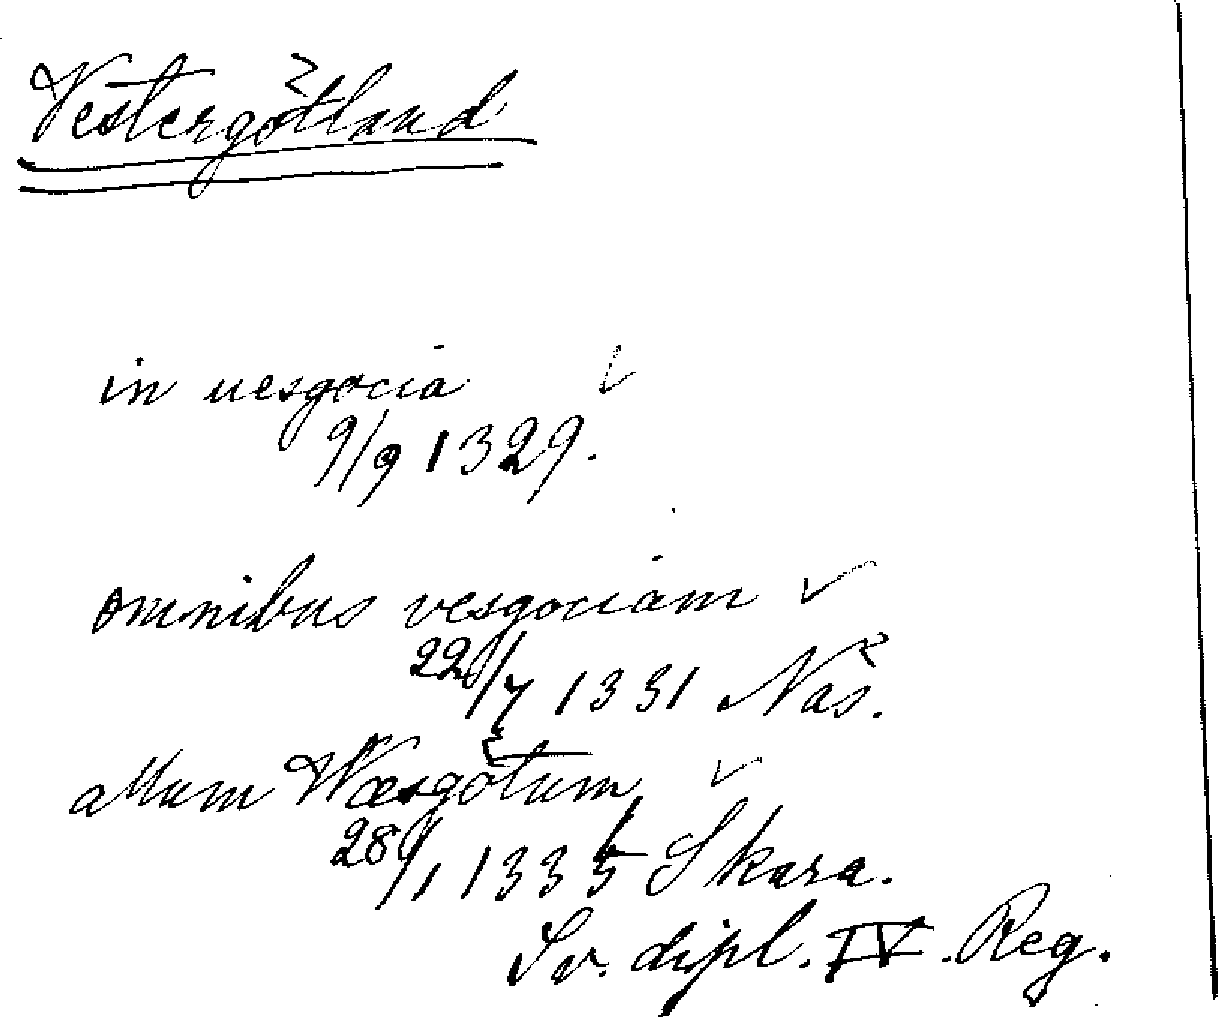 Vestergötland
in uesgocia
9/9 1329.
omnibus vesgociam
22/7 1331 Näs.
allum Wæsgötum
28/1 1335 Skara.
Sv. dipl. IV. Reg.